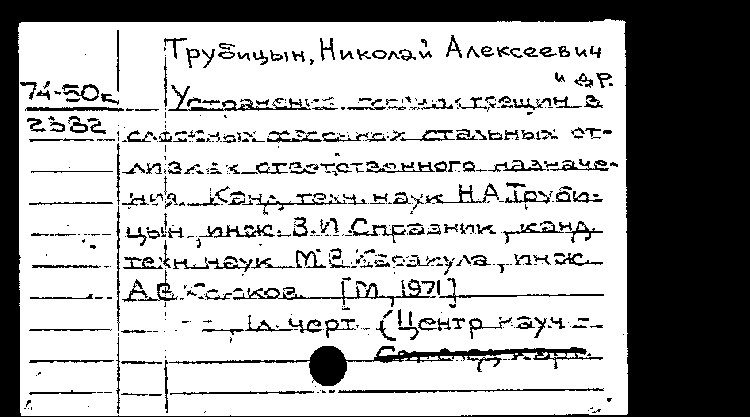 Трубицын, Николай Алексеевич
и др.
74-50
2382
Устранение трещин в
сложных стальных от-
ливках ответственного назначе-
ния. Канд. техн. наук Н.А.Труби-
цын, инж. В.И Справник, канд.
техн. наук М.В.Каракула, инж.
А.В. [М, 1971]
1л. черт. (Центр науч-